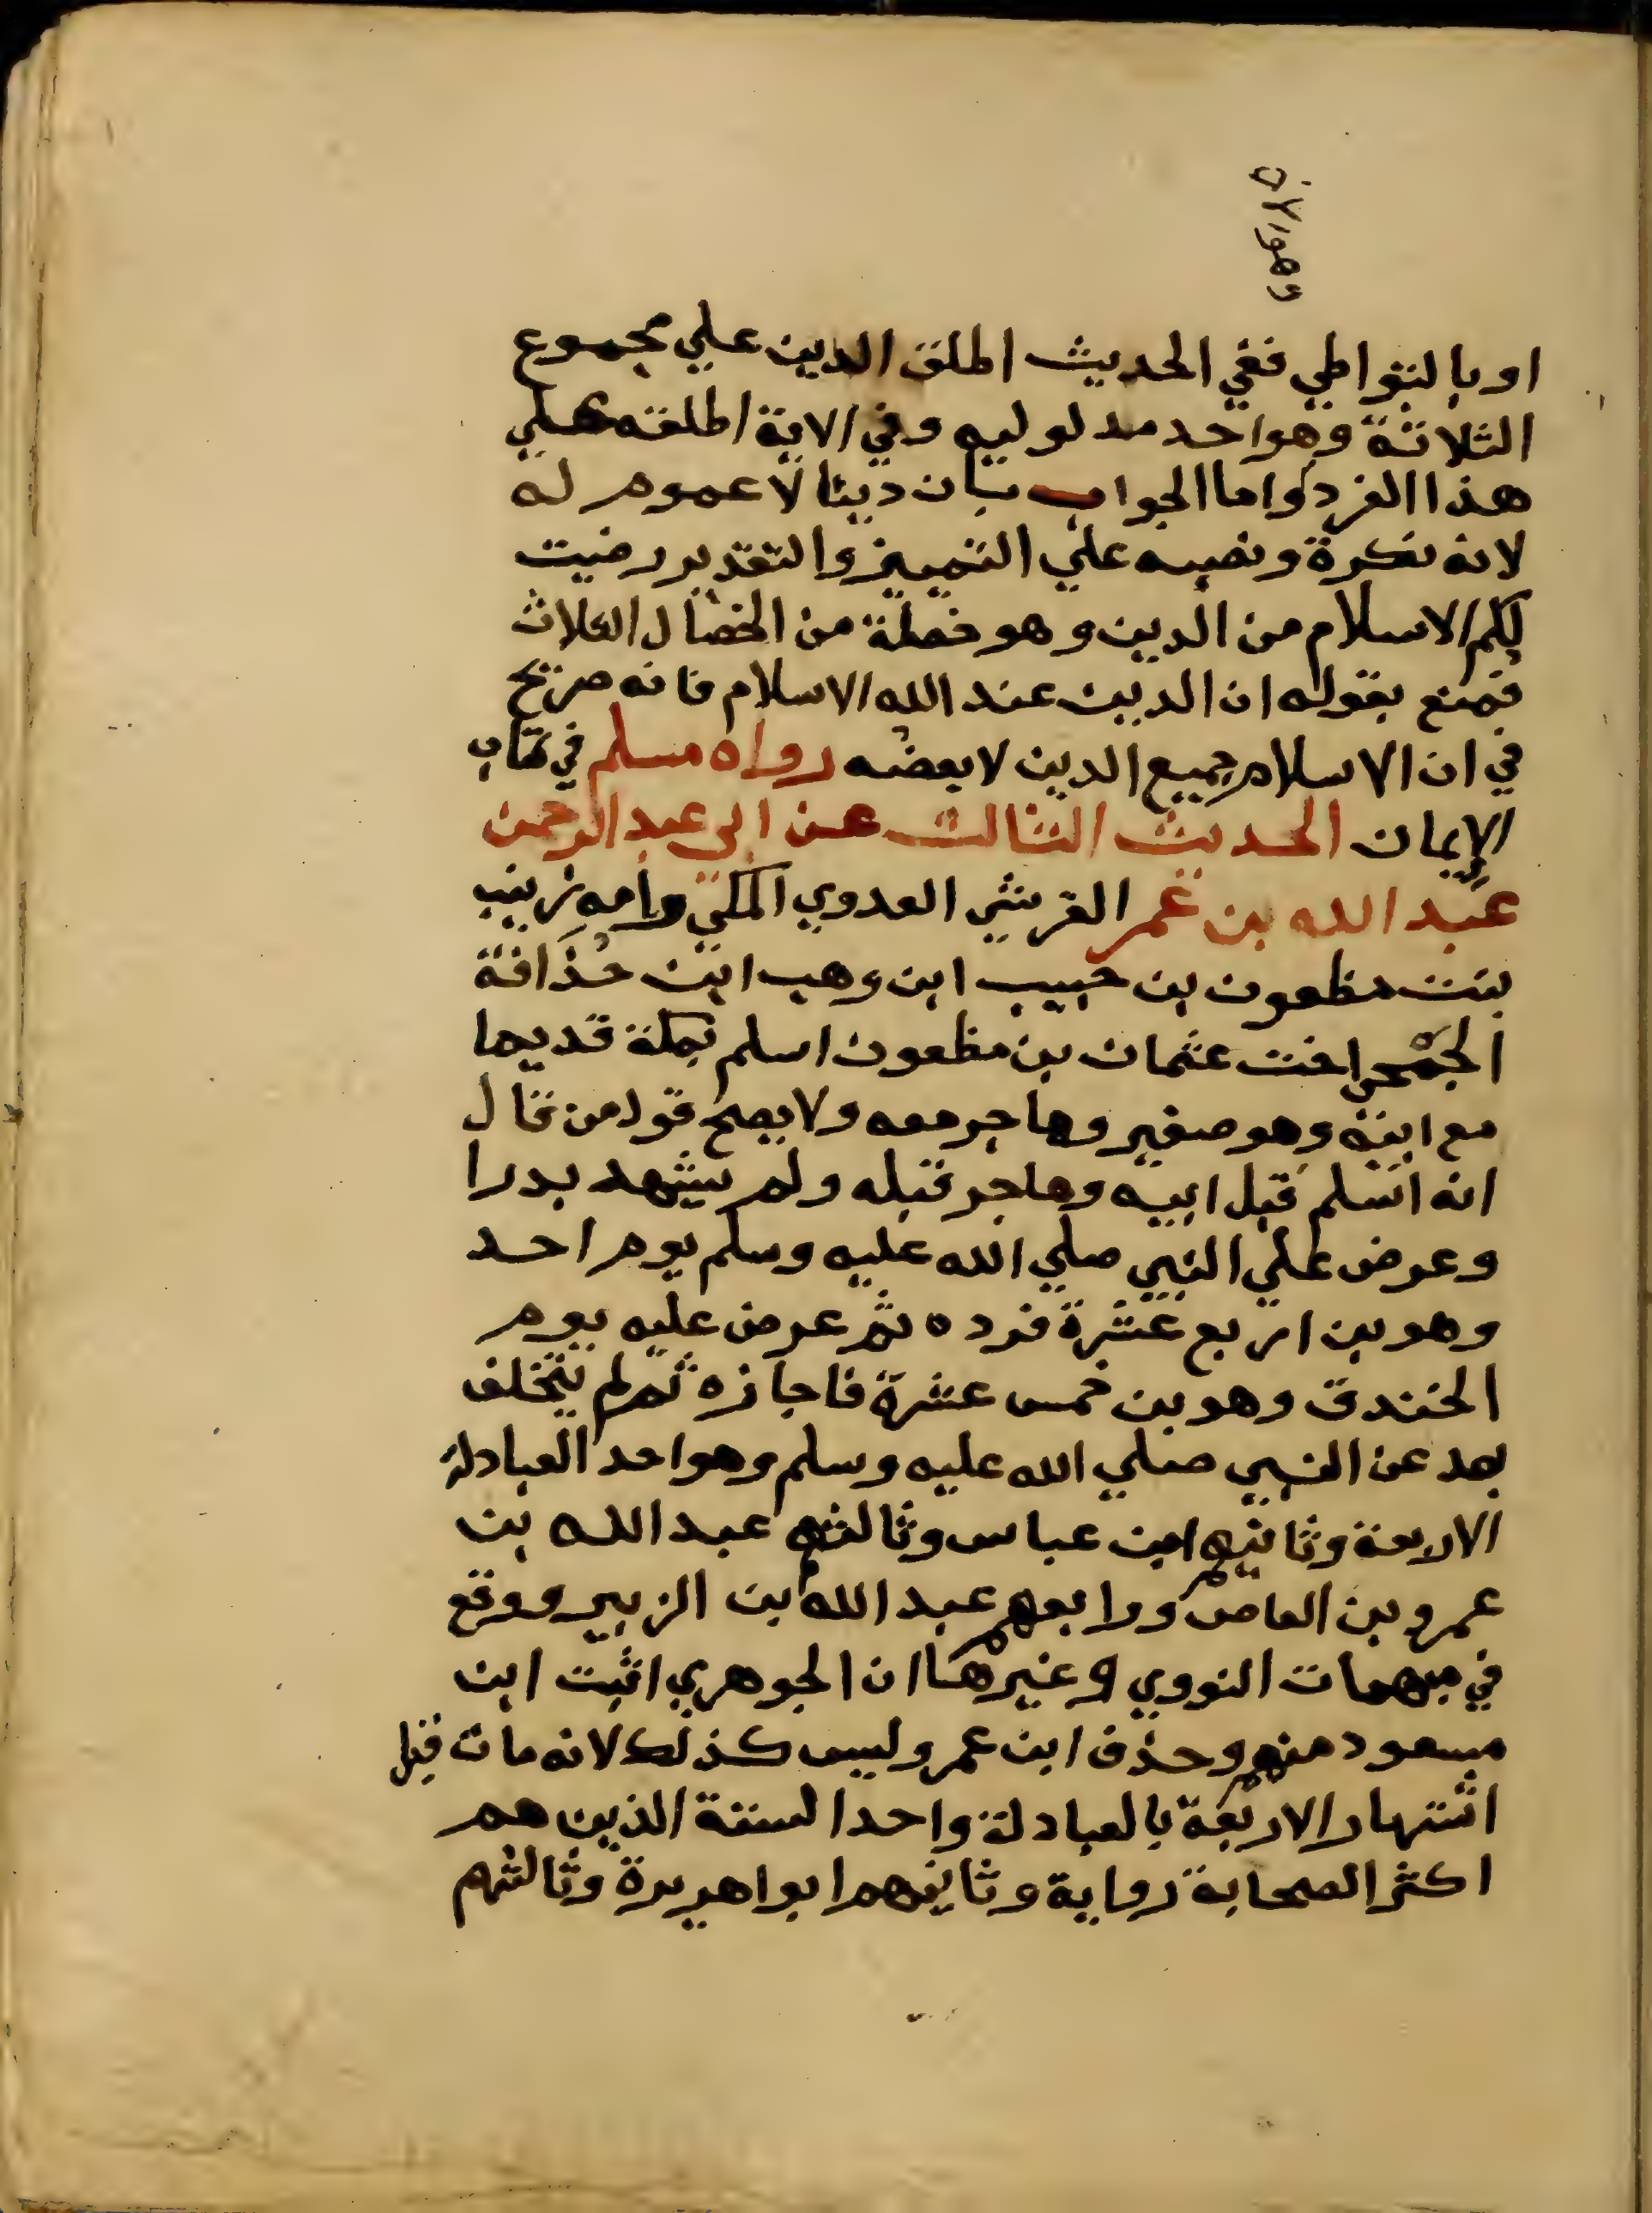 او بالتواطي ففي الحديث اطلق الدين علي مجموع
الثلاثة وهو احد مدلوليه وفي الاية اطلقه علي
هذا الفرد واما الجواب بان دينا لا عموم له
لانه نكرة ونصبه علي التمييز والتقدير رضيت
لكم الاسلام من الدين وهو خصلة من الخصال الثلاث
فمنع بقوله ان الدين عند الله الاسلام فانه صريح
في ان الاسلام جميع الدين لا بعضه رواه مسلم في كتاب
الإيمان الحديث الثالث عن ابي عبد الرحمن
عبد الله بن عمر القرشي العدوي المكي وامه زينب
بنت مظعون بن حبيب ابن وهب ابن حُذَافة
الجمحي اخت عثمان بن مظعون اسلم بمكة قديما
مع ابيه وهو صغير وهاجر معه ولا يصح قول من قال
انه اسلم قبل ابيه وهاجر قبله ولم يشهد بدرا
وعرض علي النبي صلي الله عليه وسلم يوم احد
وهو بن اربع عشرة فرده ثم عرض عليه يوم
الخندق وهو بن خمس عشرة فاجازه ثم لم يتخلف
بعد عن النبي صلي الله عليه وسلم وهو احد العبادلة
الاربعة وثانيهم ابن عباس وثالثهم عبد الله بن
عمرو بن العاص ورابعهم عبد الله بن الزبير ووقع
في مبهمات النووي وغيرها ان الجوهري اثبت ابن
مسعود منهم وحذف ابن عمر وليس كذلك لانه مات قبل
اشتهار الاربعة بالعبادلة واحد الستة الذين هم
اكثر الصحابة رواية وثانيهم ابو اهريرة وثالثهم